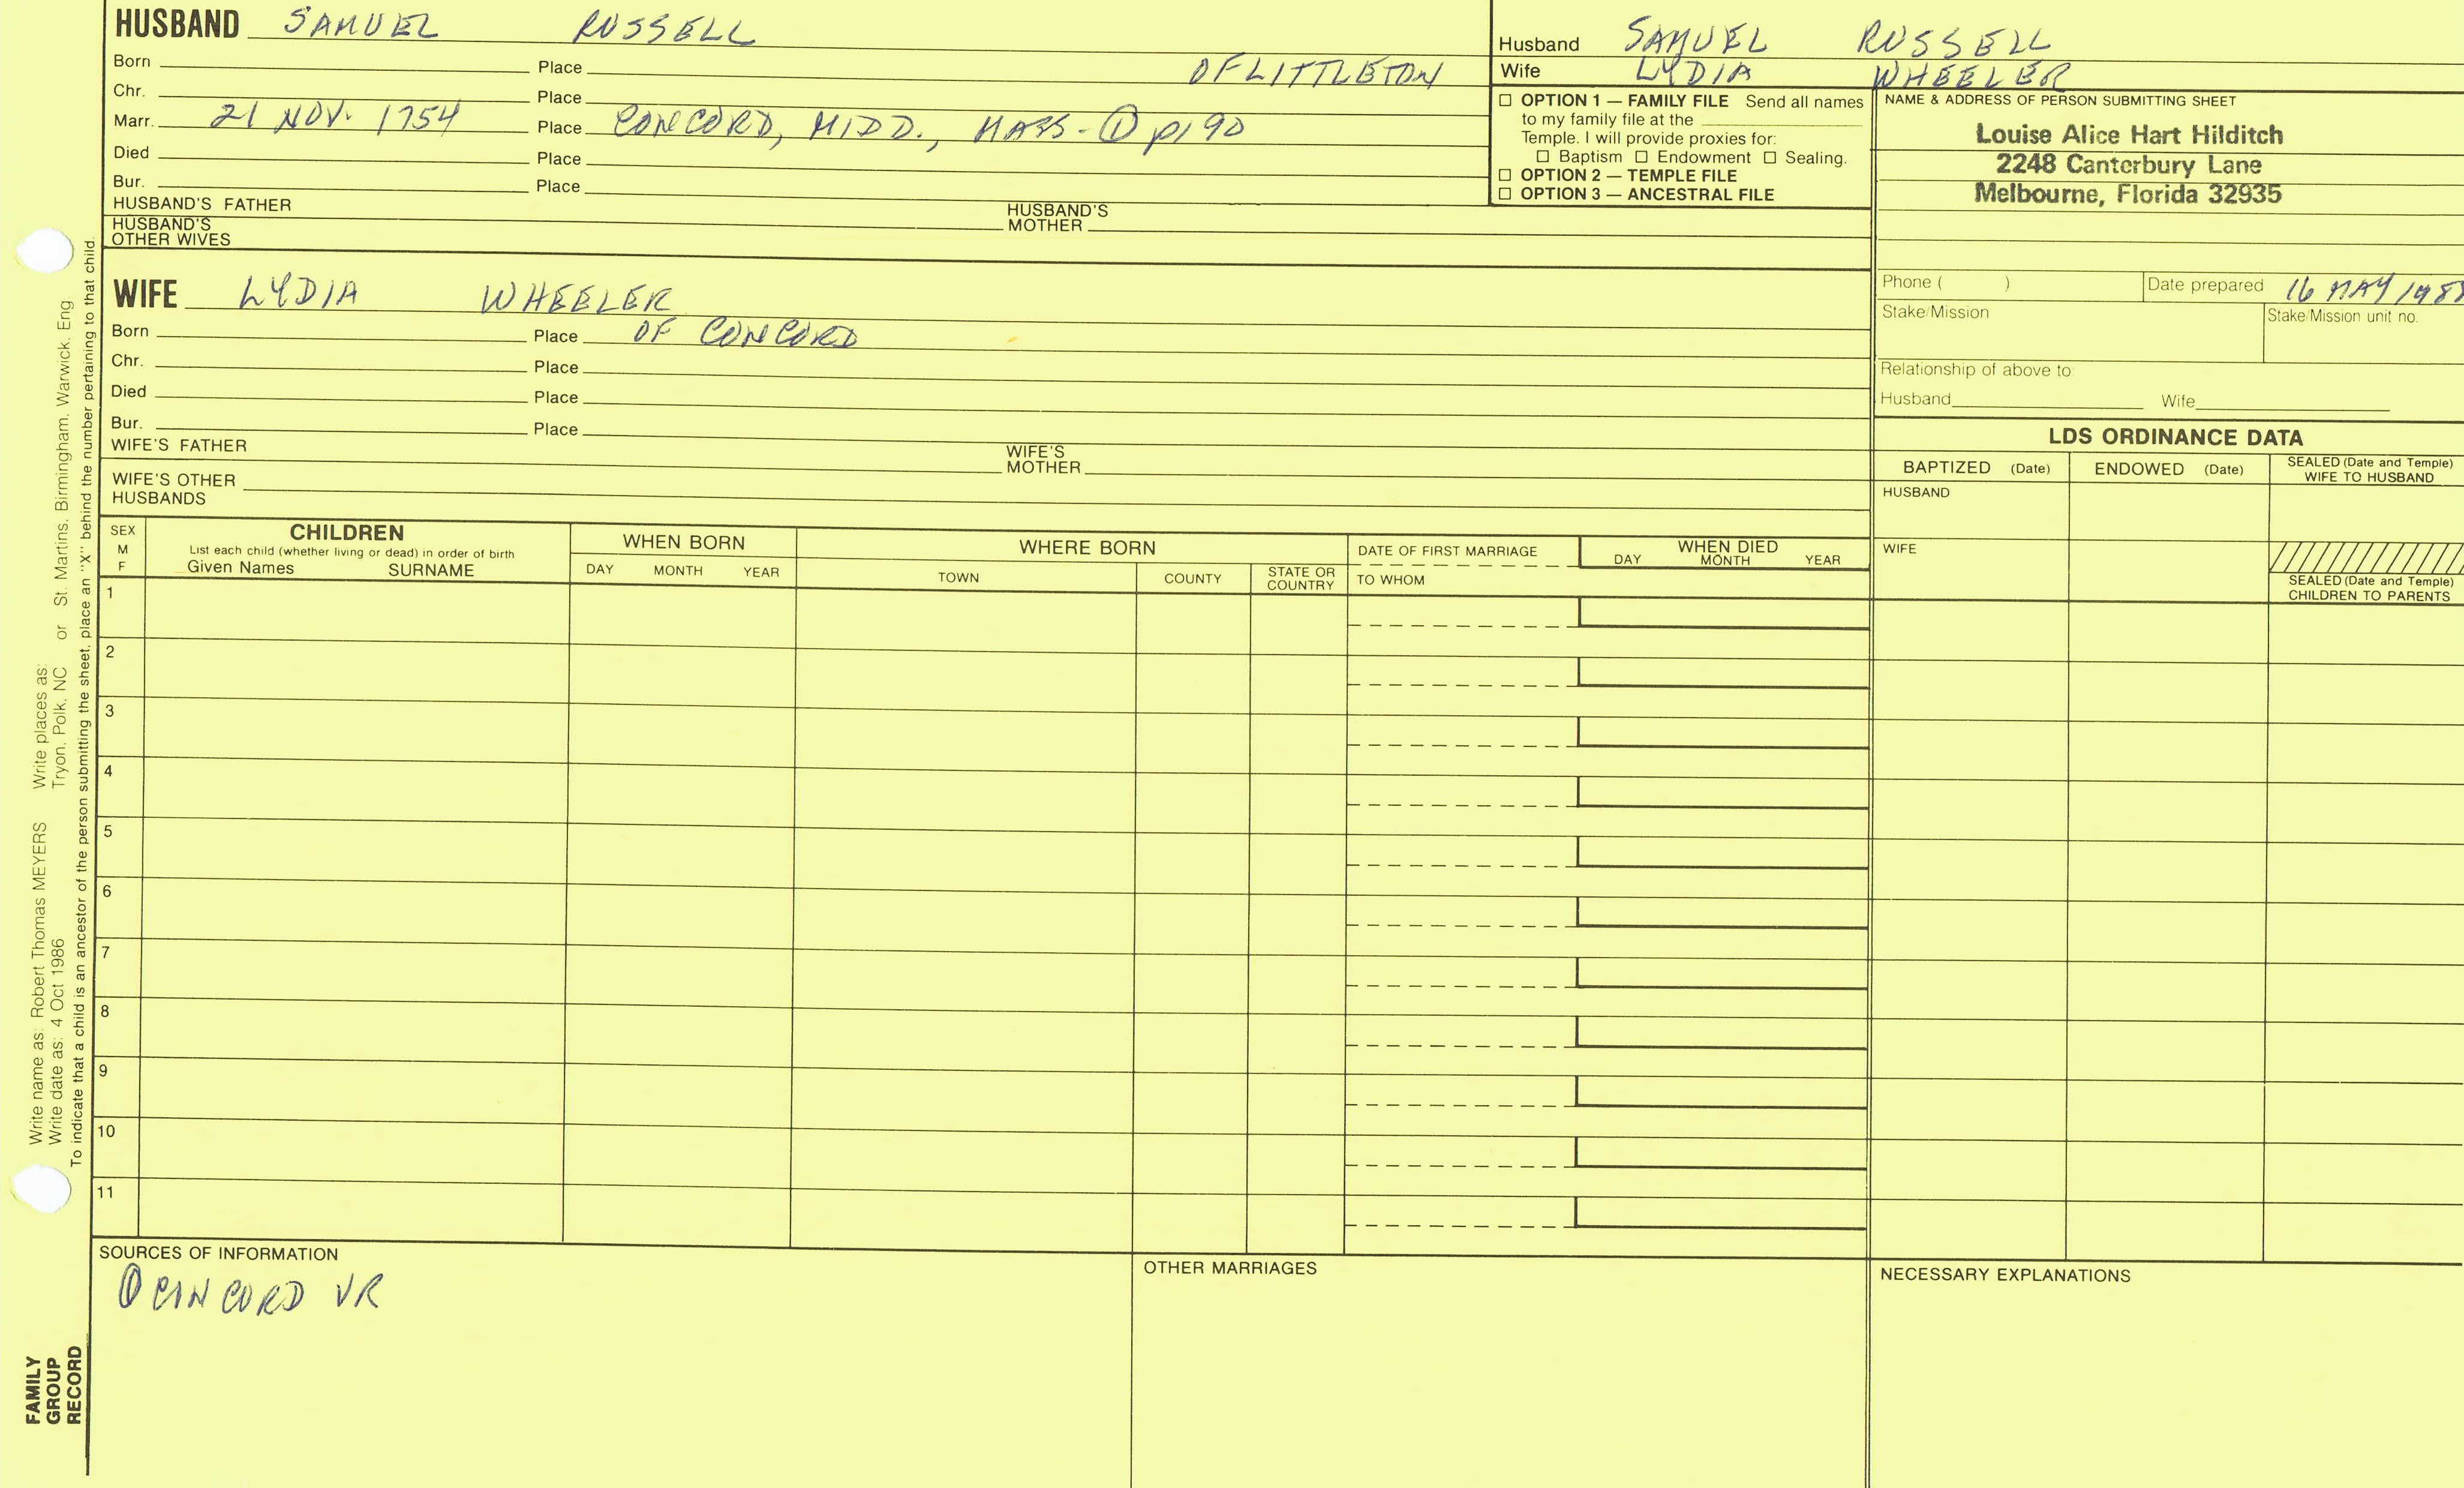 HUSBAND SAMUEL RUSSELL
Born Place OF LITTLETON
Chr. Place
Marr. 21 NOV. 1754 Place CONCORD, MIDD., MASS - ① p190
Died Place
Bur. Place
HUSBAND'S FATHER HUSBAND'S MOTHER
HUSBAND'S OTHER WIVES
Husband SAMUEL RUSSELL
Wife LYDIA WHEELER
☐ OPTION 1 — FAMILY FILE Send all names
to my family file at the
Temple. I will provide proxies for:
☐ Baptism ☐ Endowment ☐ Sealing.
☐ OPTION 2 — TEMPLE FILE
☐ OPTION 3 — ANCESTRAL FILE
NAME & ADDRESS OF PERSON SUBMITTING SHEET
Louise Alice Hart Hilditch
2248 Canterbury Lane
Melbourne, Florida 32935
Phone ( ) Date prepared 16 MAY
Stake/Mission Stake/Mission unit no.
Relationship of above to:
Husband Wife
WIFE LYDIA WHEELER
Born Place OF CONCORD
Chr. Place
Died Place
Bur. Place
WIFE'S FATHER WIFE'S MOTHER
WIFE'S OTHER HUSBANDS
LDS ORDINANCE DATA
BAPTIZED (Date) ENDOWED (Date) SEALED (Date and Temple) WIFE TO HUSBAND
HUSBAND
WIFE
SEALED (Date and Temple)
CHILDREN TO PARENTS
SEX
M
F
CHILDREN
List each child (whether living or dead) in order of birth
Given Names SURNAME
WHEN BORN
DAY MONTH YEAR
WHERE BORN
TOWN COUNTY STATE OR COUNTRY
DATE OF FIRST MARRIAGE
TO WHOM
WHEN DIED
DAY MONTH YEAR
1
2
3
4
5
6
7
8
9
10
11
SOURCES OF INFORMATION
① CONCORD VR
OTHER MARRIAGES
NECESSARY EXPLANATIONS
Write name as: Robert Thomas MEYERS Write places as:
Write date as: 4 Oct 1986 Tryon, Polk, NC or St. Martins, Birmingham, Warwick, Eng
To indicate that a child is an ancestor of the person submitting the sheet, place an "X" behind the number pertaining to that child.
FAMILY
GROUP
RECORD